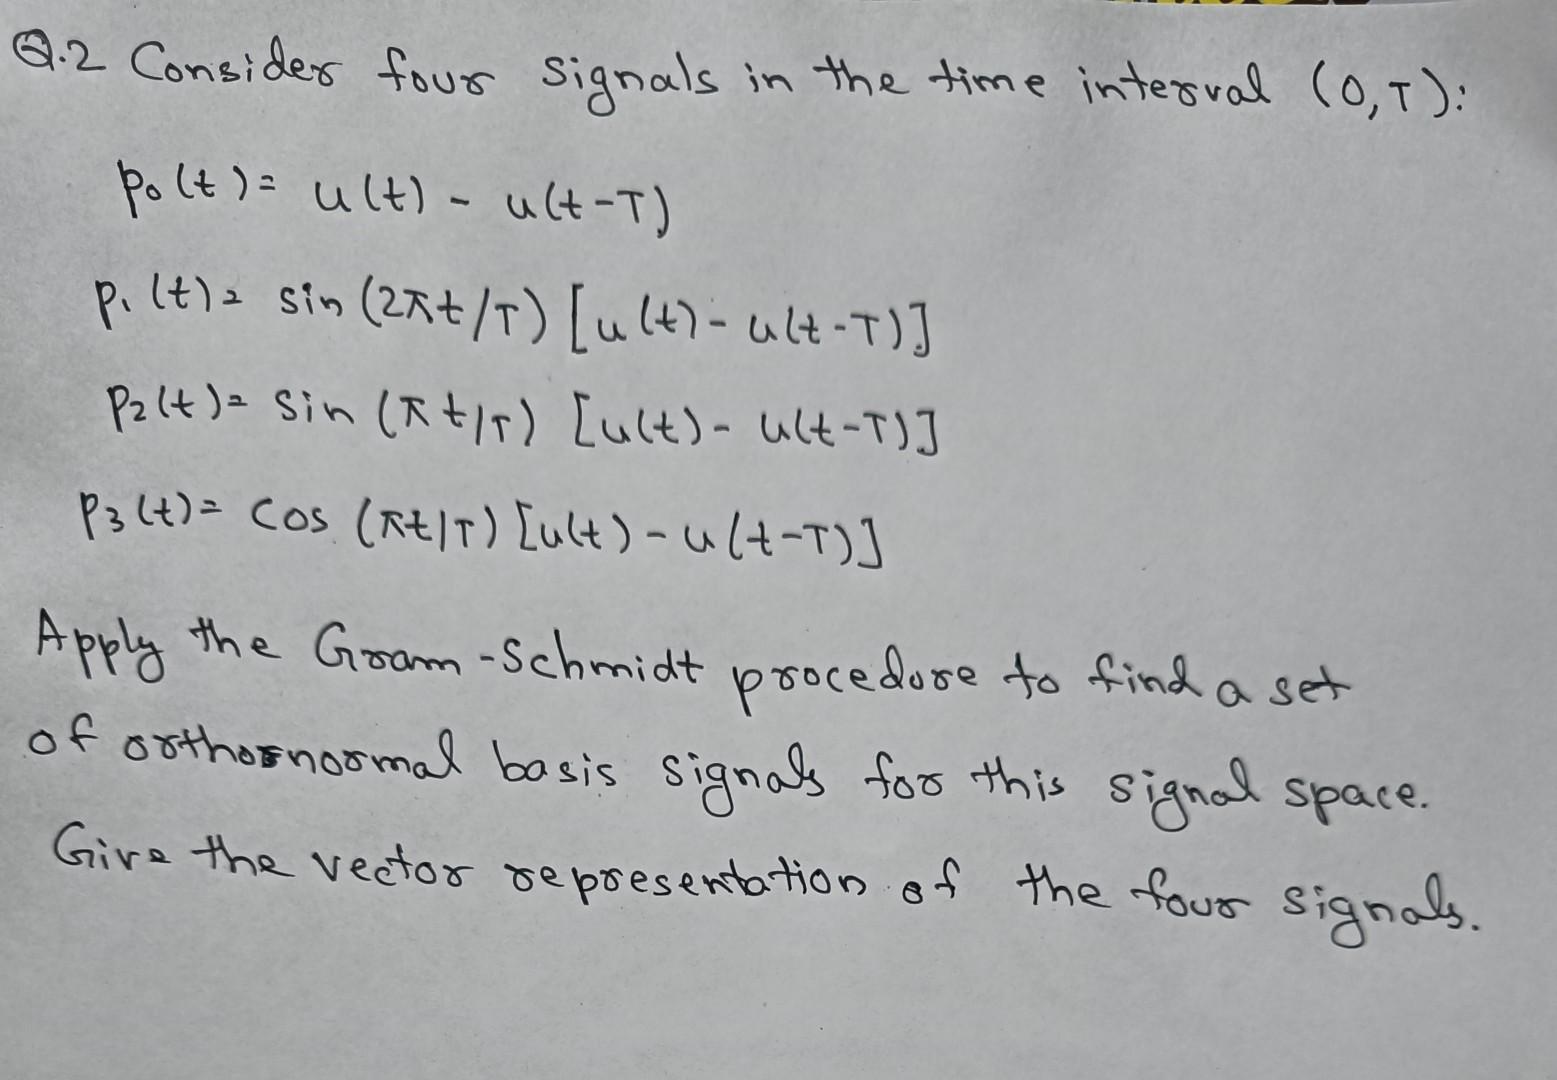 Q.2 Consider four signals in the time interval (0,T):
p₀(t) = u(t) - u(t-T)
p₁(t) = sin(2πt/T) [u(t) - u(t-T)]
p₂(t) = sin(πt/T) [u(t) - u(t-T)]
p₃(t) = cos(πt/T) [u(t) - u(t-T)]
Apply the Gram-Schmidt procedure to find a set
of orthornormal basis signals for this signal space.
Give the vector representation of the four signals.